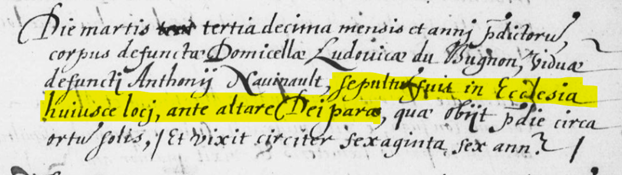 Die martis tertia decima mensis et annj pdictoru,
corpus defunctæ Domicellæ Ludovicæ du Bugnon, viduæ
defunctj Anthonij Nauinault, sepultu fuit in Ecclesia
huiusce locj, ante altare Dei paræ, quæ obijt pdie circa
ortu solis, / Et vixit circiter sexaginta, sex ann? /